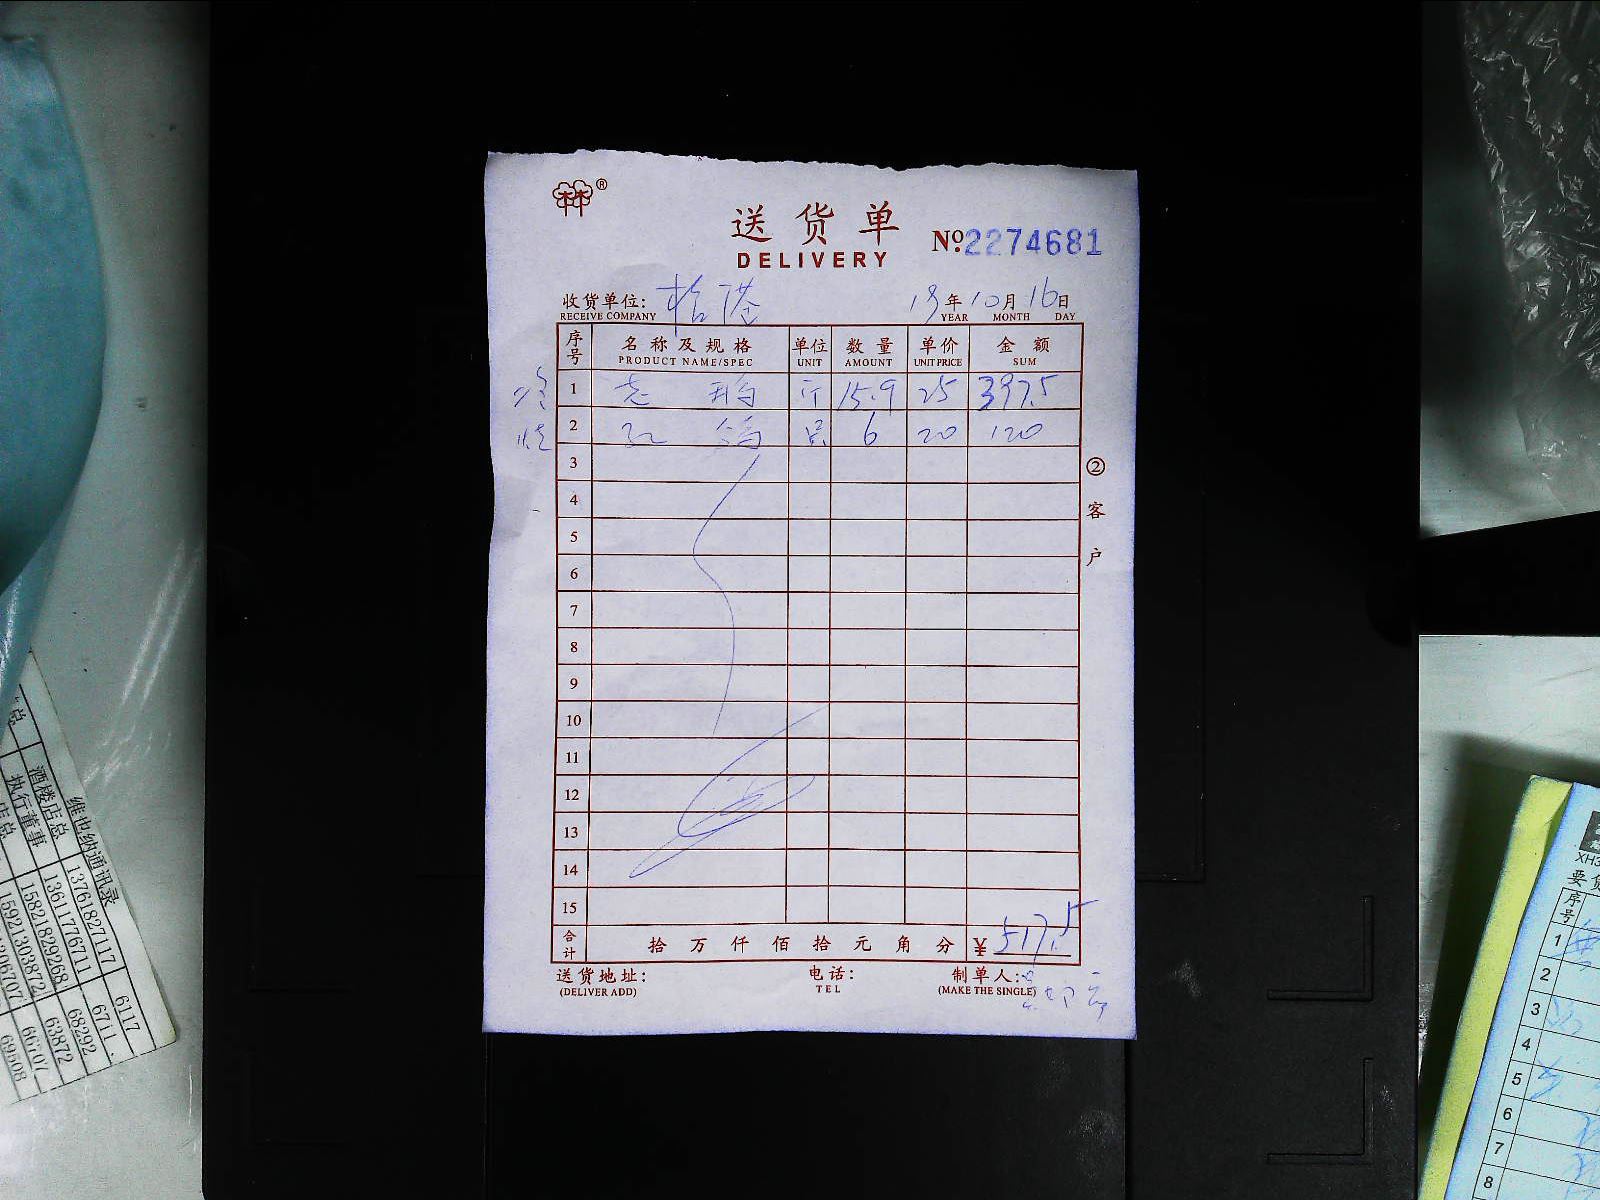 ®
送货单
DELIVERY
№2274681
收货单位:
RECEIVE COMPANY
13年10月16日
YEAR MONTH DAY
序号 名称及规格 单位 数量 单价 金额
PRODUCT NAME/SPEC UNIT AMOUNT UNIT PRICE SUM
1 老 鹅 斤 15.9 25 397.5
烧 2 红 鸽 只 6 20 120
3
4
5
6
7
8
9
10
11
12
13
14
15
合计 拾 万 仟 佰 拾 元 角 分 ¥ 517.5
送货地址: 电话: 制单人:
(DELIVER ADD) TEL (MAKE THE SINGLE)
②客户
维也纳通讯录
酒楼店总 13761827117 6117
执行董事 13611776711 6711
15821829268 68292
15921303872 63872
66707
69508
XH3
要货
序号
1
2
3
4
5
6
7
8